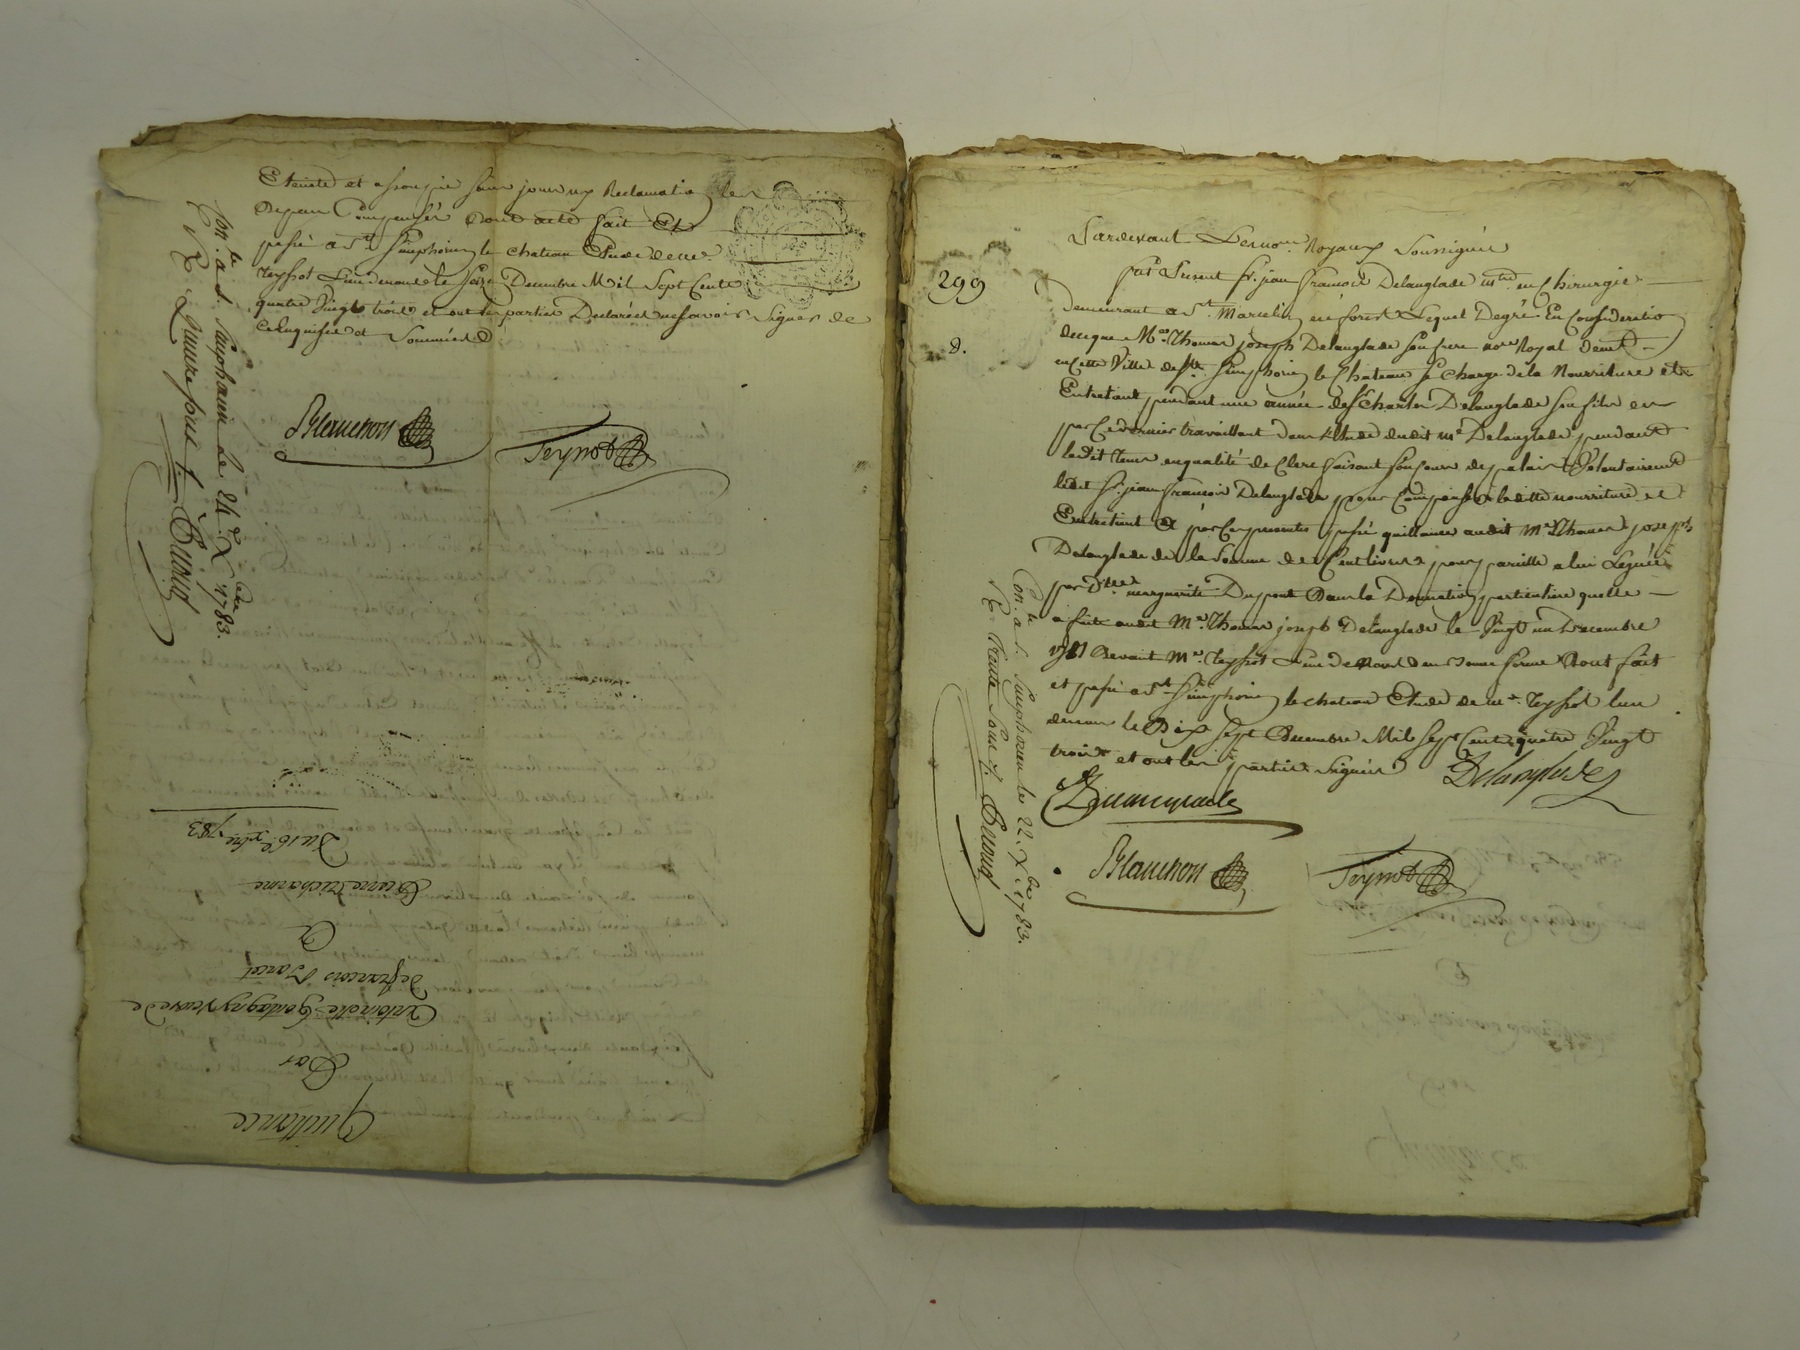 Eteinte et assoupie sans jamais y Reclamation les
Depens Compensés Dont acte fait Et
passé a St Simphorien le chateau Etude de me
Teyssot L'un de nous le Seize Decembre Mil Sept Cents
quatre Vingts trois et ont les parties Declarées ne savoir Signer de
ce Enquises et Sommées
Blanchon
Teyssot
Con.te a S. Simphorien le 24e Xbre 1783.
R. quinze sous
Quittance
Par
Antoinette Gontagny veuve de
De francois Barcet
A
Pierre
Du 16 Xbre 1783
299
D.
Pardevant Les no.res Royaux Soussignés
fut Present Sr. jean francois Delanglade mtre en Chirurgie
demeurant a St. Marcelin en forest Lequel Degré En Consideration
de ce que Me Thomas joseph Delanglade son frere no.re Royal demt
en Cette Ville de St. Simphorien le Chateau se charge de la Nourriture et
Entretient pendant une année de Sr. Charles Delanglade son fils en
par Ce dernier travaillant dans l'Etude dudit me Delanglade pendant
ledit tems en qualité de Clerc faisant son Cours de palais Volontairement
ledit Sr. jean francois Delanglade pour Compenser ladite nourriture et
Entretient a par Ces presentes passé quittance audit Me Thomas joseph
Delanglade de la Somme de Cent livres pour pareille a lui Leguée
par Dlle marguerite Dupont Dans la Donation particuliere quelle
a faite audit Me. Thomas joseph Delanglade le Vingt un Decembre
1781 Devant Me. Teyssot L'un de Nous en bonne forme Dont fait
et passé a St Simphorien le chateau Etude de me Teyssot l'un
de nous le Dix Sept Decembre Mil Sept Cents quatre Vingt
trois et ont les parties Signées
Delanglade
Delanglade
Blanchon
Teyssot
Con.te a S. Simphorien le 22. Xbre 1783.
R. Trente sous